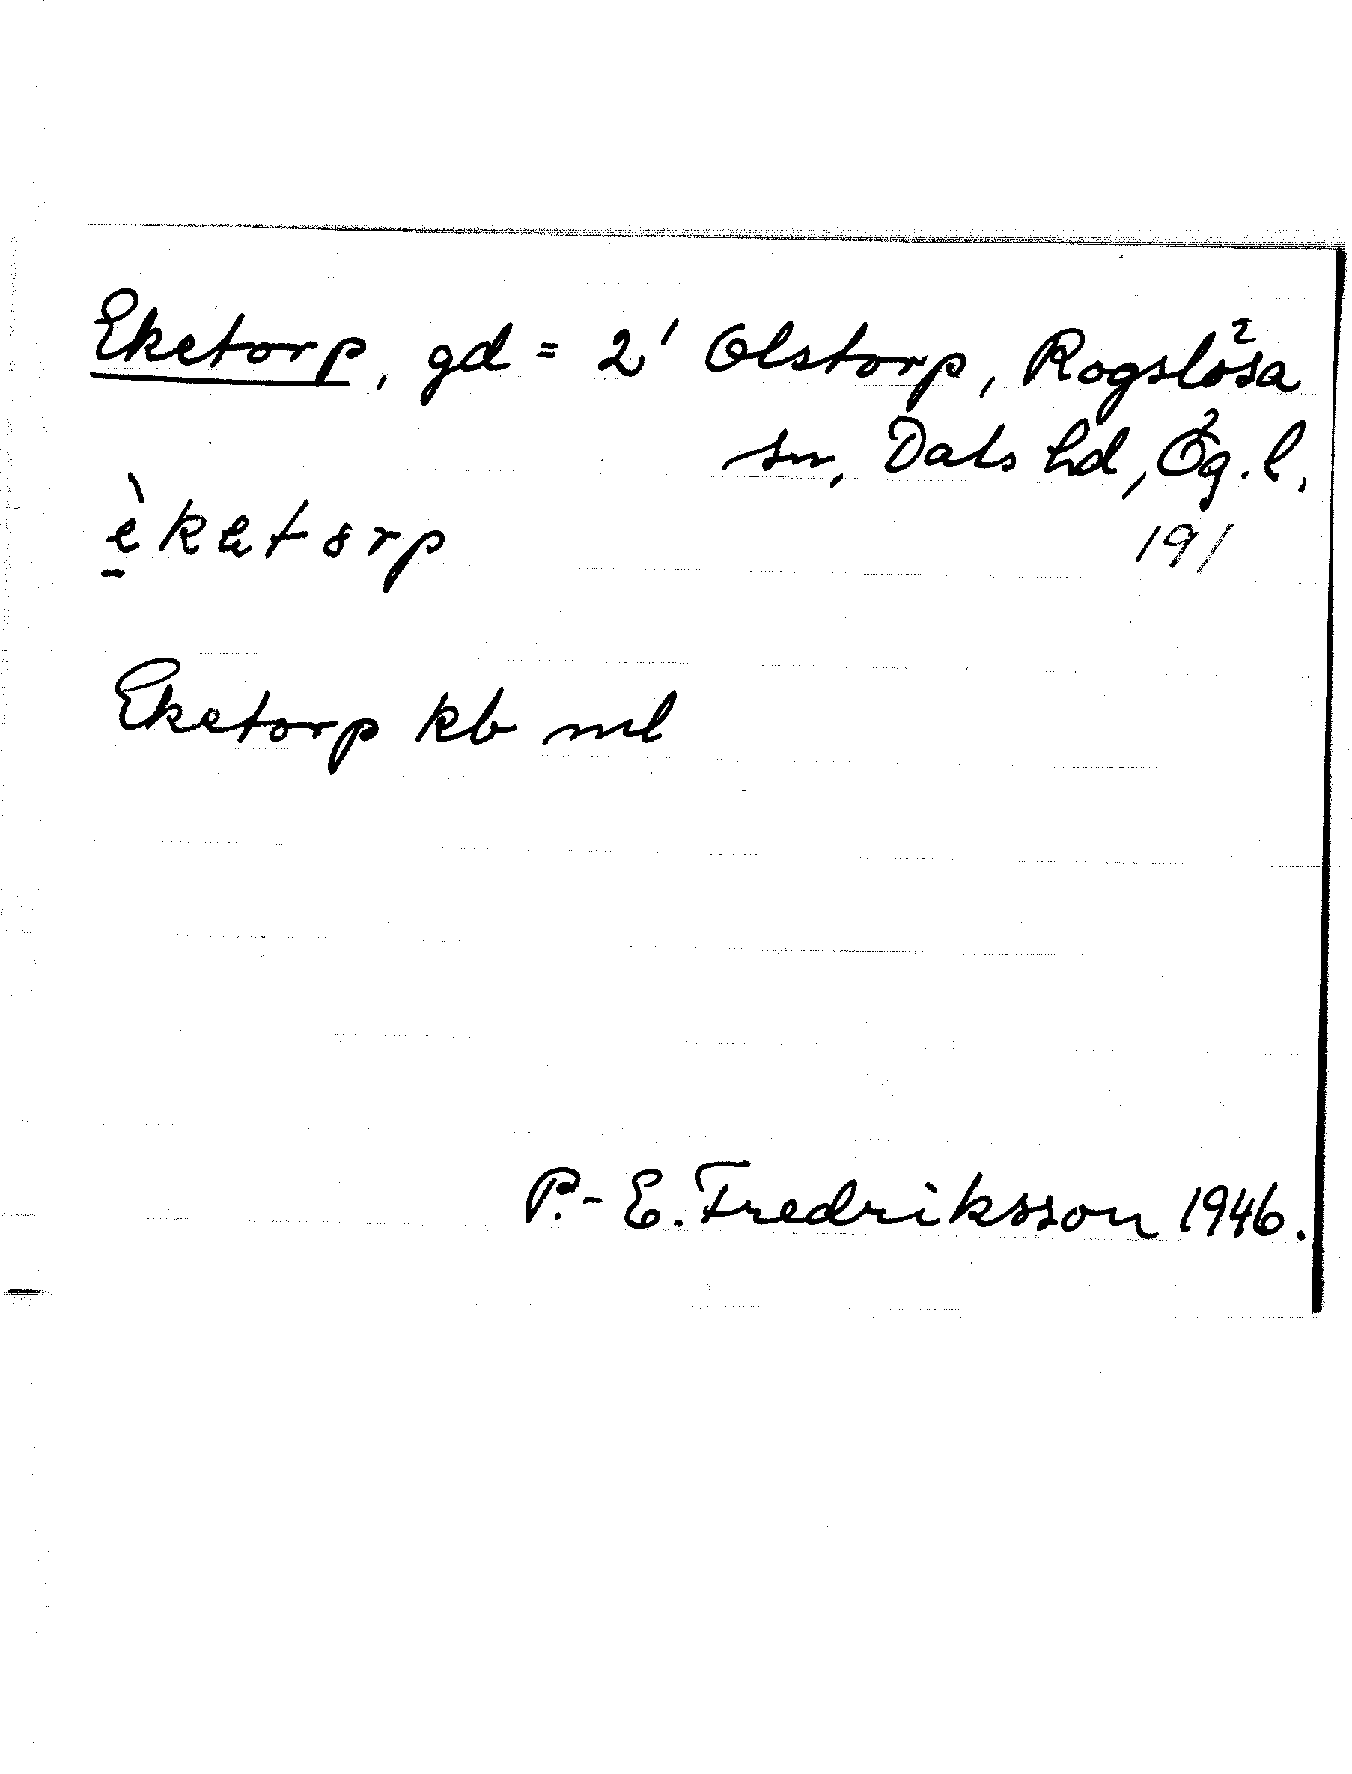 Eketorp, gd = 2' Olstorp, Rogslösa
sn, Dals hd, Ög. l.
191
Eketorp kb ml
P.-E. Fredriksson 1946.